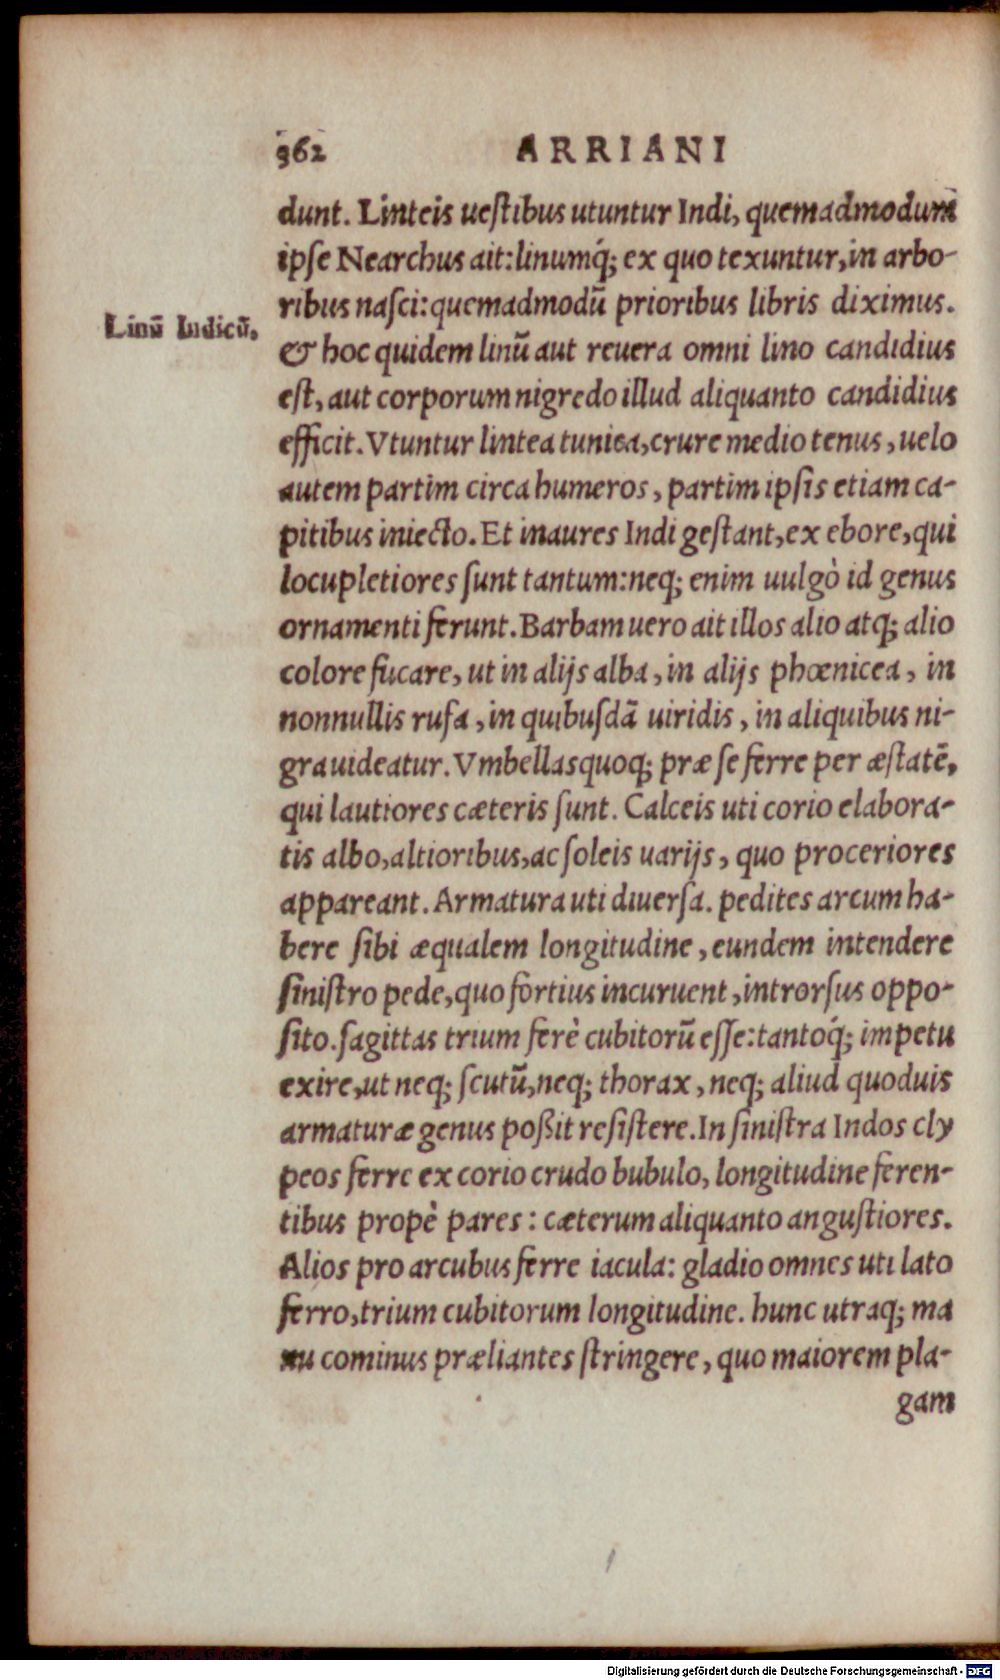 362 ARRIANI
dunt. Linteis uestibus utuntur Indi, quemadmodum
ipse Nearchus ait: linumq́; ex quo texuntur, in arbo-
ribus nasci: quemadmodū prioribus libris diximus.
Linū Indicū.
& hoc quidem linū aut reuera omni lino candidius
est, aut corporum nigredo illud aliquanto candidius
efficit. Vtuntur lintea tunica, crure medio tenus, uelo
autem partim circa humeros, partim ipsis etiam ca-
pitibus iniecto. Et inaures Indi gestant, ex ebore, qui
locupletiores sunt tantum: neq; enim uulgò id genus
ornamenti ferunt. Barbam uero ait illos alio atq; alio
colore fucare, ut in alijs alba, in alijs phœnicea, in
nonnullis rufa, in quibusdā uiridis, in aliquibus ni-
gra uideatur. Vmbellas quoq; præ se ferre per æstatē,
qui lautiores cæteris sunt. Calceis uti corio elabora-
tis albo, altioribus, ac soleis uarijs, quo proceriores
appareant. Armatura uti diuersa. pedites arcum ha-
bere sibi æqualem longitudine, eundem intendere
sinistro pede, quo fortius incuruent, introrsus oppo-
sito. sagittas trium ferè cubitorū esse: tantoq́; impetu
exire, ut neq; scutū, neq; thorax, neq; aliud quoduis
armaturæ genus poßit resistere. In sinistra Indos cly
peos ferre ex corio crudo bubulo, longitudine feren-
tibus propè pares: cæterum aliquanto angustiores.
Alios pro arcubus ferre iacula: gladio omnes uti lato
ferro, trium cubitorum longitudine. hunc utraq; ma
nu cominus præliantes stringere, quo maiorem pla-
gam
Digitalisierung gefördert durch die Deutsche Forschungsgemeinschaft - DFG